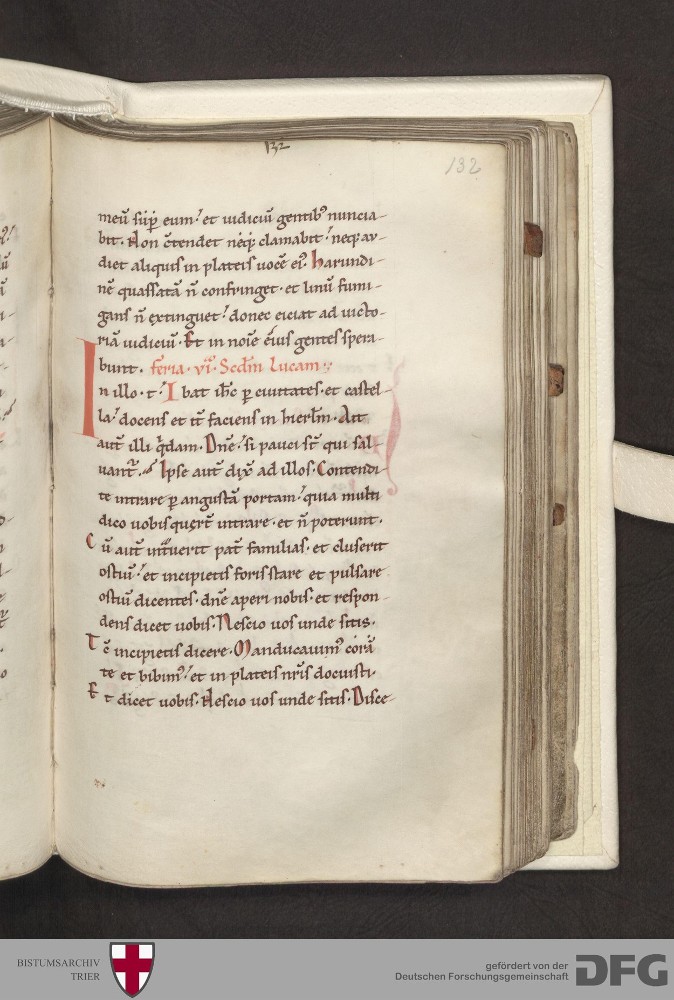 132
132
meū sup̄ eum! et iudiciū gentibꝰ nuncia-
bit. Non c̄tendet neq; clamabit! neq; au-
diet aliquis in plateis uocē eiꝰ. harundi-
nē quassatā n̄ confringet. et linū fumi-
gans n̄ extinguet! donec eiciat ad uicto-
riā iudiciū. Et in noīe eius gentes spera-
bunt. feria. vi. Scdm̄ lucam
In illo. t! Ibat ihc ꝑ ciuitates. et castel-
la! docens et it̄ faciens in hierlm̄. Ait
aut̄ illi q̄dam. Dn̄e! si pauci st̄ qui sal-
uant̄. Ipse aut̄ dix̄ ad illos. Contendi-
te intrare ꝑ angustā portam! quia multi
dico uobis quęrt̄ intrare. et n̄ poterunt.
Cū aut̄ intuerit pat̄ familias. et cluserit
ostiū! et incipietis foris stare et pulsare
ostiū dicentes. dn̄e aperi nobis. et respon-
dens dicet uobis. Nescio uos unde sitis.
Tc̄ incipietis dicere. Manducauimꝰ corā
te et bibimꝰ! et in plateis nr̄is docuisti.
Et dicet uobis. Nescio uos unde sitis. Disce-
BISTUMSARCHIV
TRIER
gefördert von der
Deutschen Forschungsgemeinschaft
DFG